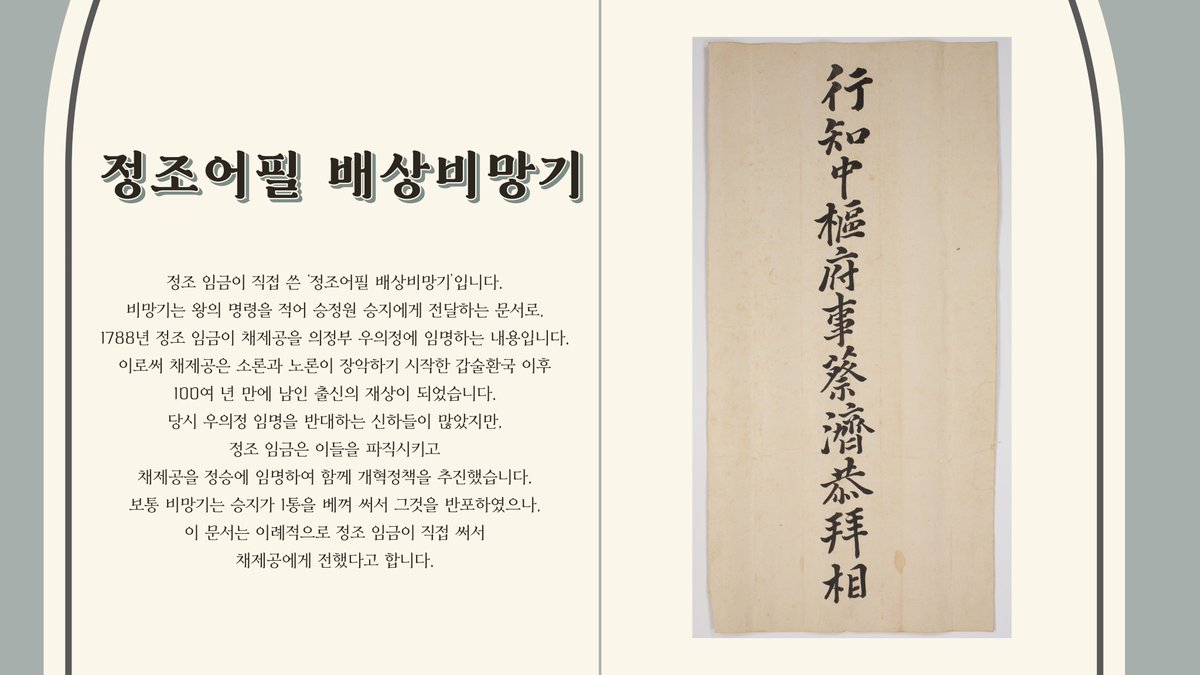 정조어필 배상비망기
정조 임금이 직접 쓴 '정조어필 배상비망기'입니다.
비망기는 왕의 명령을 적어 승정원 승지에게 전달하는 문서로,
1788년 정조 임금이 채제공을 의정부 우의정에 임명하는 내용입니다.
이로써 채제공은 소론과 노론이 장악하기 시작한 갑술환국 이후
100여 년 만에 남인 출신의 재상이 되었습니다.
당시 우의정 임명을 반대하는 신하들이 많았지만,
정조 임금은 이들을 파직시키고
채제공을 정승에 임명하여 함께 개혁정책을 추진했습니다.
보통 비망기는 승지가 1통을 베껴 써서 그것을 반포하였으나,
이 문서는 이례적으로 정조 임금이 직접 써서
채제공에게 전했다고 합니다.
行知中樞府事蔡濟恭拜相